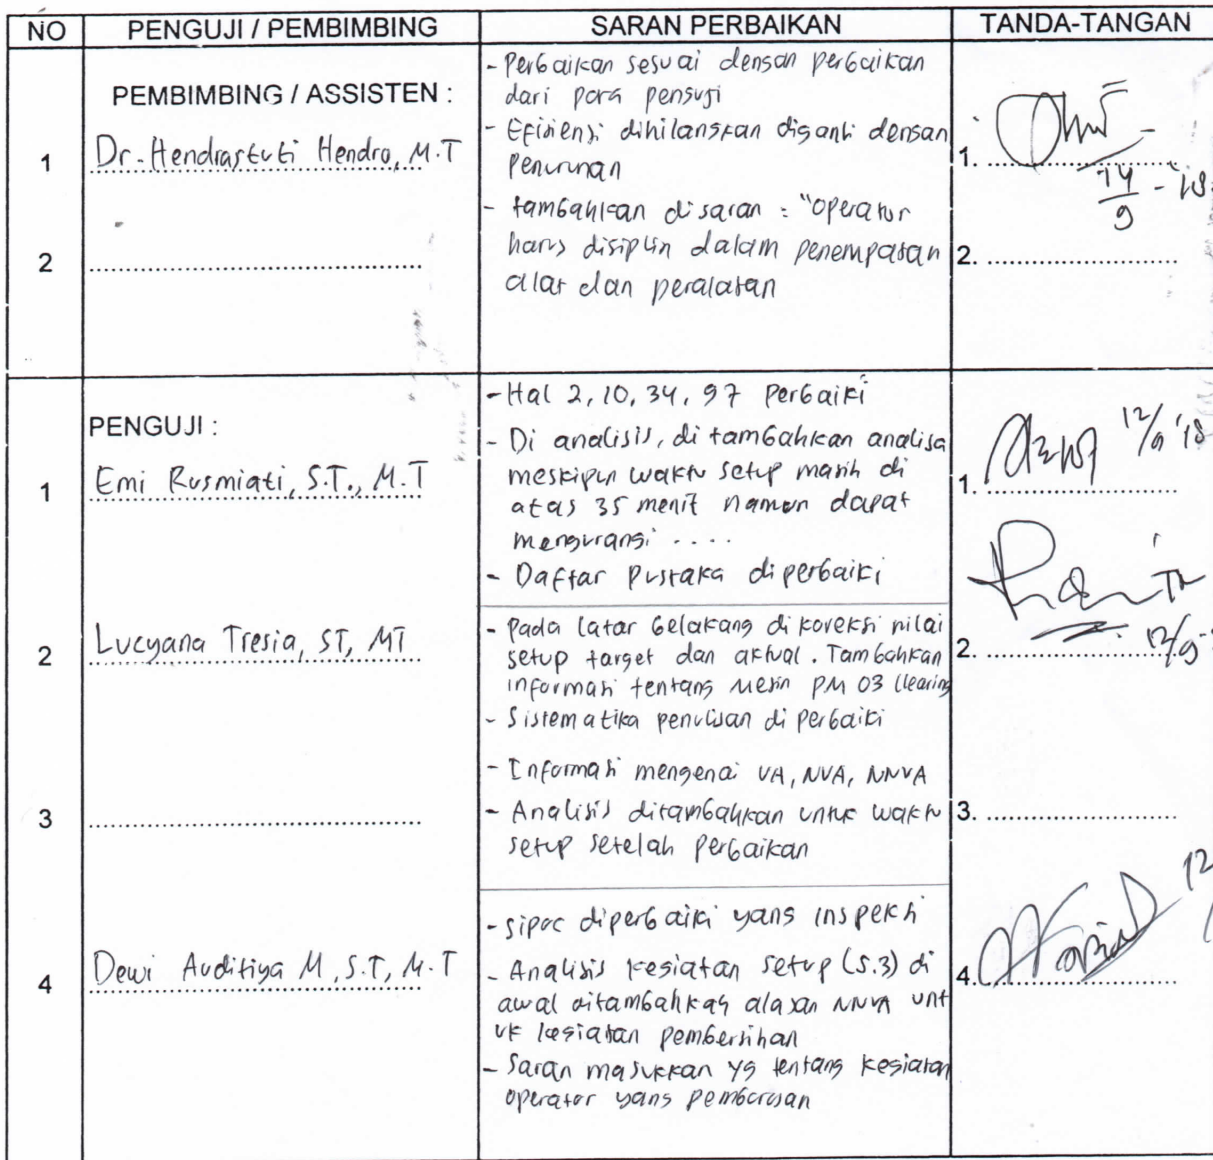 NO PENGUJI / PEMBIMBING SARAN PERBAIKAN TANDA-TANGAN
PEMBIMBING / ASSISTEN :
1 Dr. Hendrastuti Hendro, M.T
2
- Perbaikan sesuai dengan perbaikan
dari para penguji
- Efisiensi dihilangkan diganti dengan
Penurunan
- tambahkan di saran : "operator
harus disiplin dalam penempatan
alat dan peralatan
1.
14/9 - '18
2.
PENGUJI :
1 Emi Rusmiati, S.T., M.T
- Hal 2, 10, 34, 97 Perbaiki
- Di analisis, di tambahkan analisa
meskipun waktu setup masih di
atas 35 menit namun dapat
mengurangi ....
- Daftar pustaka diperbaiki
1.
12/9 '18
2 Lucyana Tresia, ST, MT
- Pada latar belakang di koreksi nilai
setup target dan aktual. Tambahkan
informasi tentang mesin PM 03 Clearing
- Sistematika penulisan di perbaiki
- Informasi mengenai VA, NVA, NNVA
- Analisis ditambahkan untuk waktu
setup setelah perbaikan
2.
12/9-
3
3.
4 Dewi Auditiya M, S.T, M.T
- sipoc diperbaiki yang inspeksi
- Analisis kegiatan setup (5.3) di
awal ditambahkan alasan NNVA unt
uk kegiatan pembersihan
- Saran masukkan yg tentang kegiatan
operator yang pemborosan
4.
12